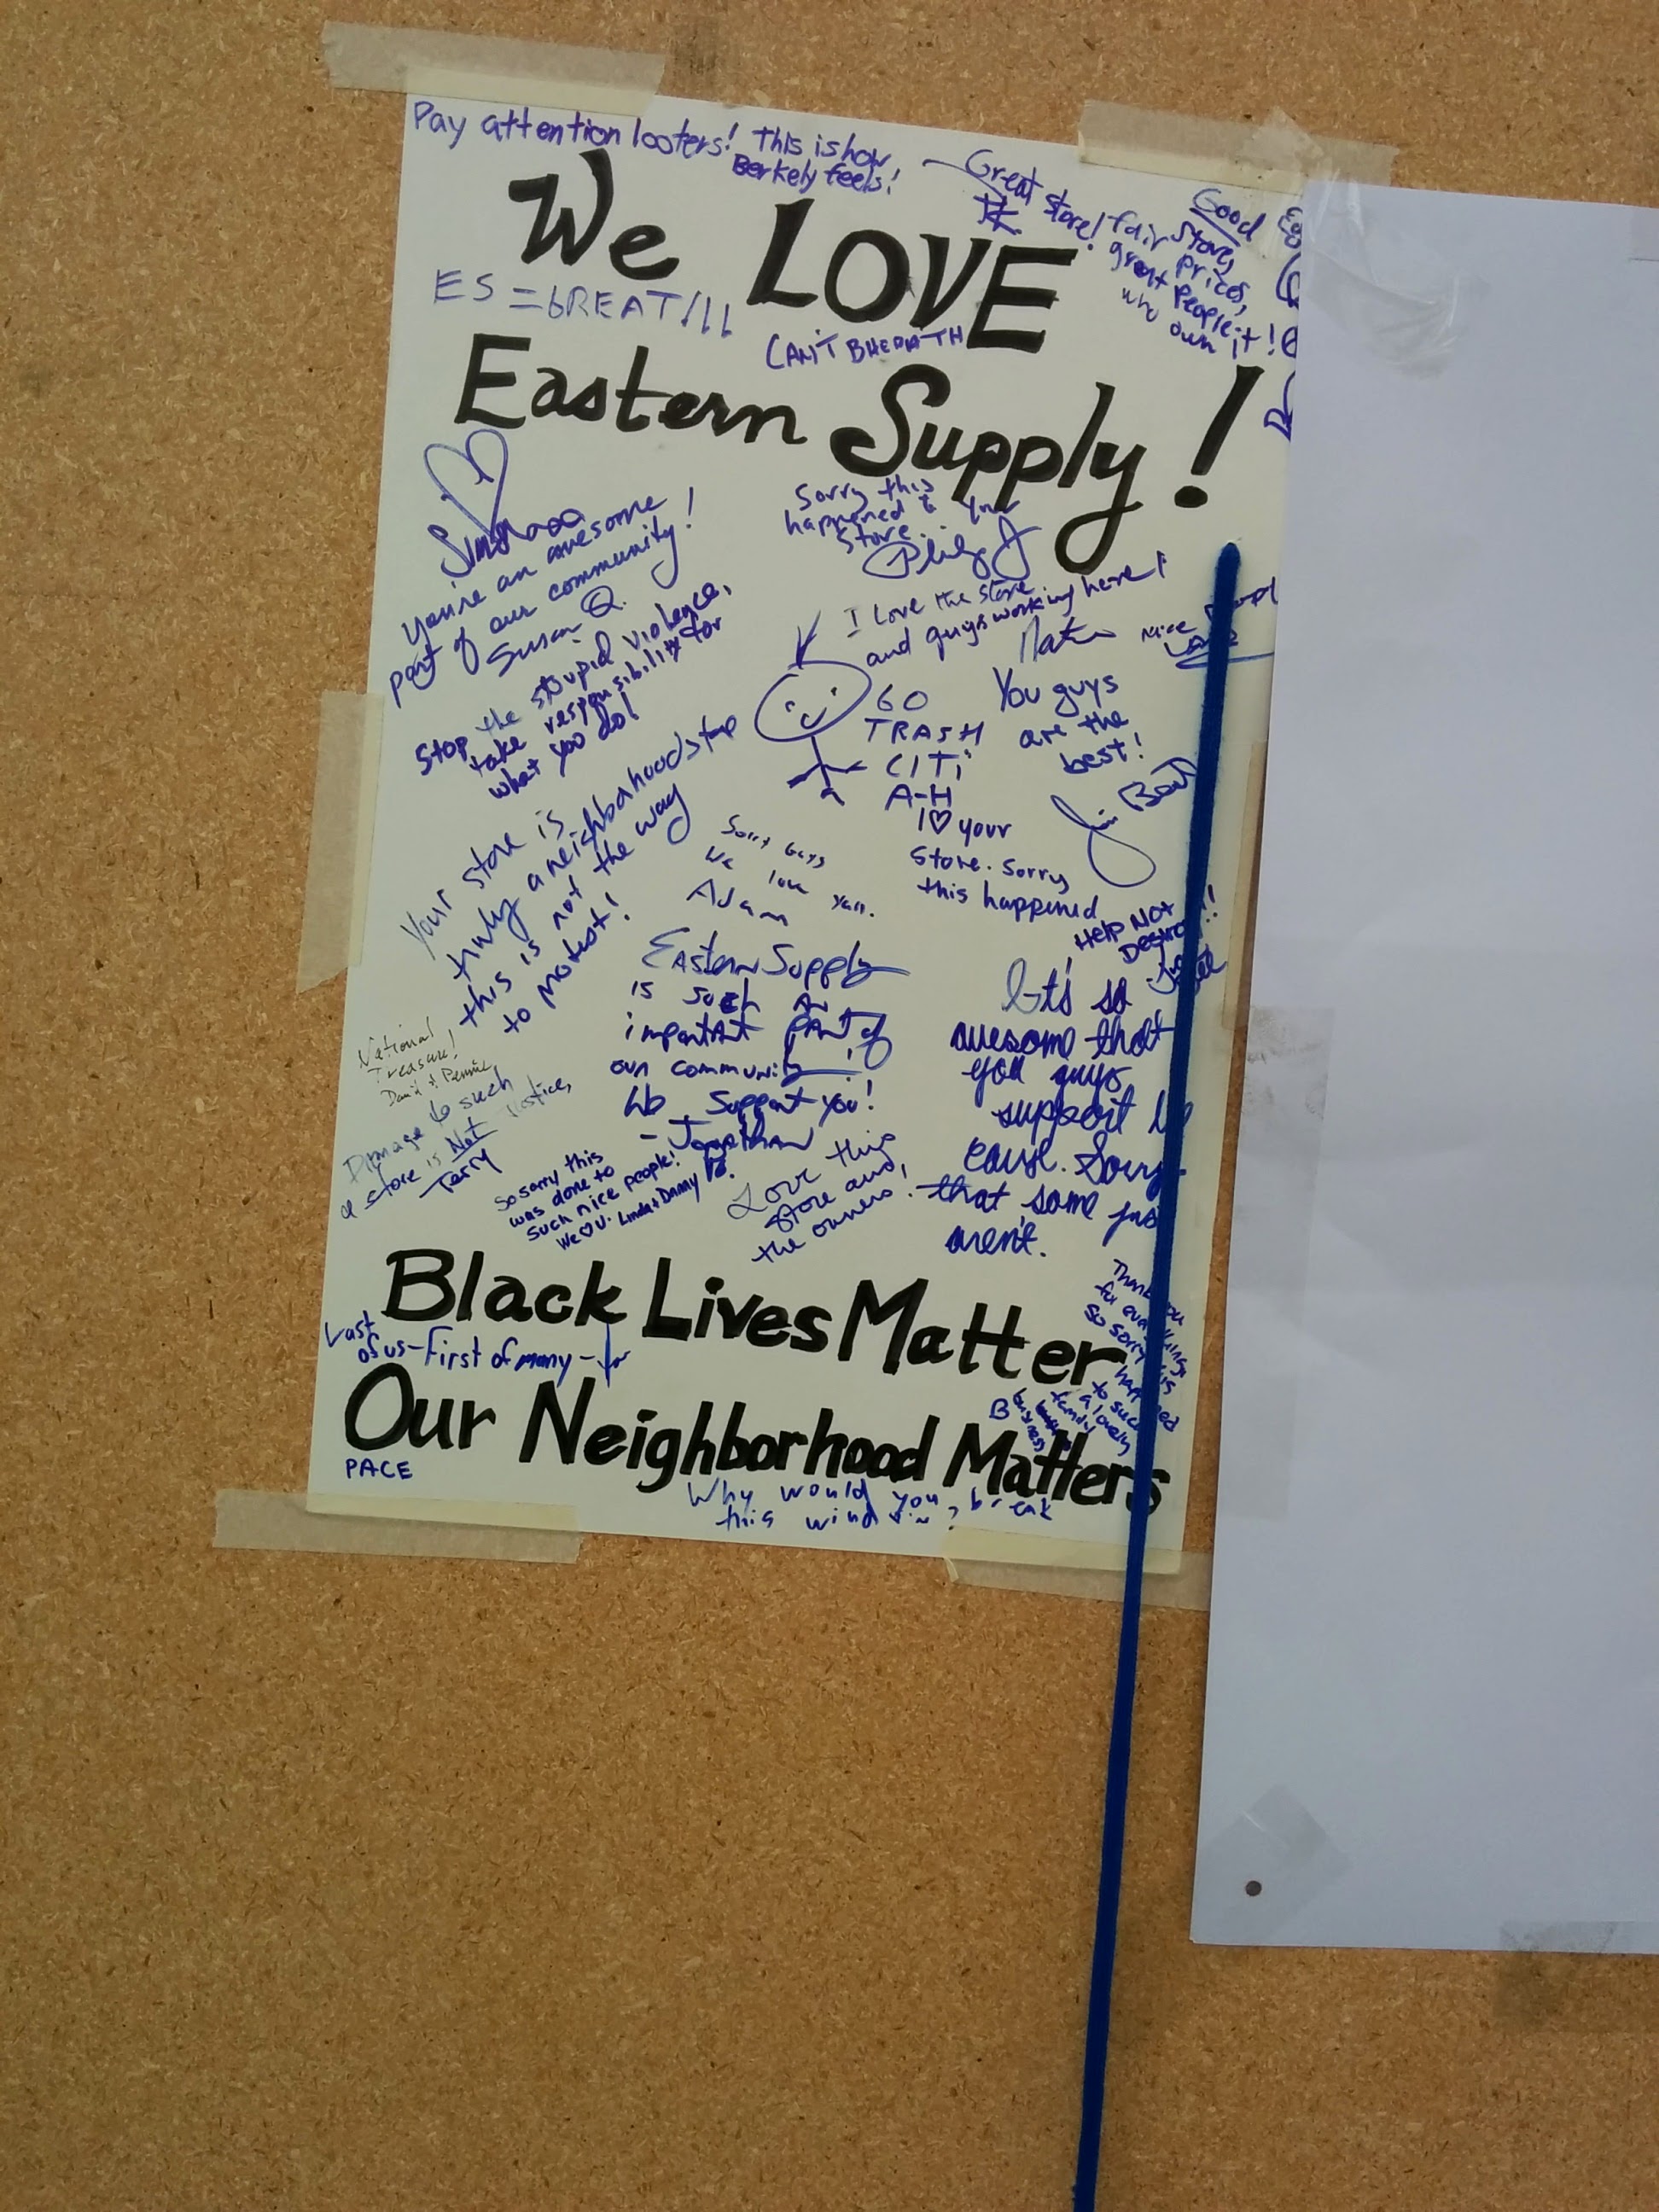 Pay attention looters! This is how
Berkely feels!
Great store!
Good
Store,
fair prices,
great People
who own it!
We LOVE
ES = GREAT
CAN'T
Eastern Supply!
You're an awesome
part of our community!
Susan Q.
Sorry this
happened to your
store.
I Love the store
and guys working here!
Nice
Stop the stoupid violence,
take responsibility for
what you do!
GO
TRASH
CITI
A-H
You guys
are the
best!
I ♡ your
store. Sorry
this happened
Your store is
truly a neighborhood
this is not the way
to protest!
Sorry Guys
We love
Adam
HELP NOT
Eastern Supply
is such an
important part of
our community!
We Support you!
- Jonathan
It's so
awesome that
you guys
support
cause. Sorry
that some
aren't.
National
Treasure!
David + Pennie
Damage to such
a store is Not Justice,
Terry
So sorry this
was done to
such nice people!
We ♡ U. Linda + Danny
Love this
store and
the owners!
Black Lives Matter
Last
of us - First of many -
Thank you
for everything.
So sorry this
happened
to such
a lovely
family
business
Our Neighborhood Matters
PACE
Why would you break
this window?